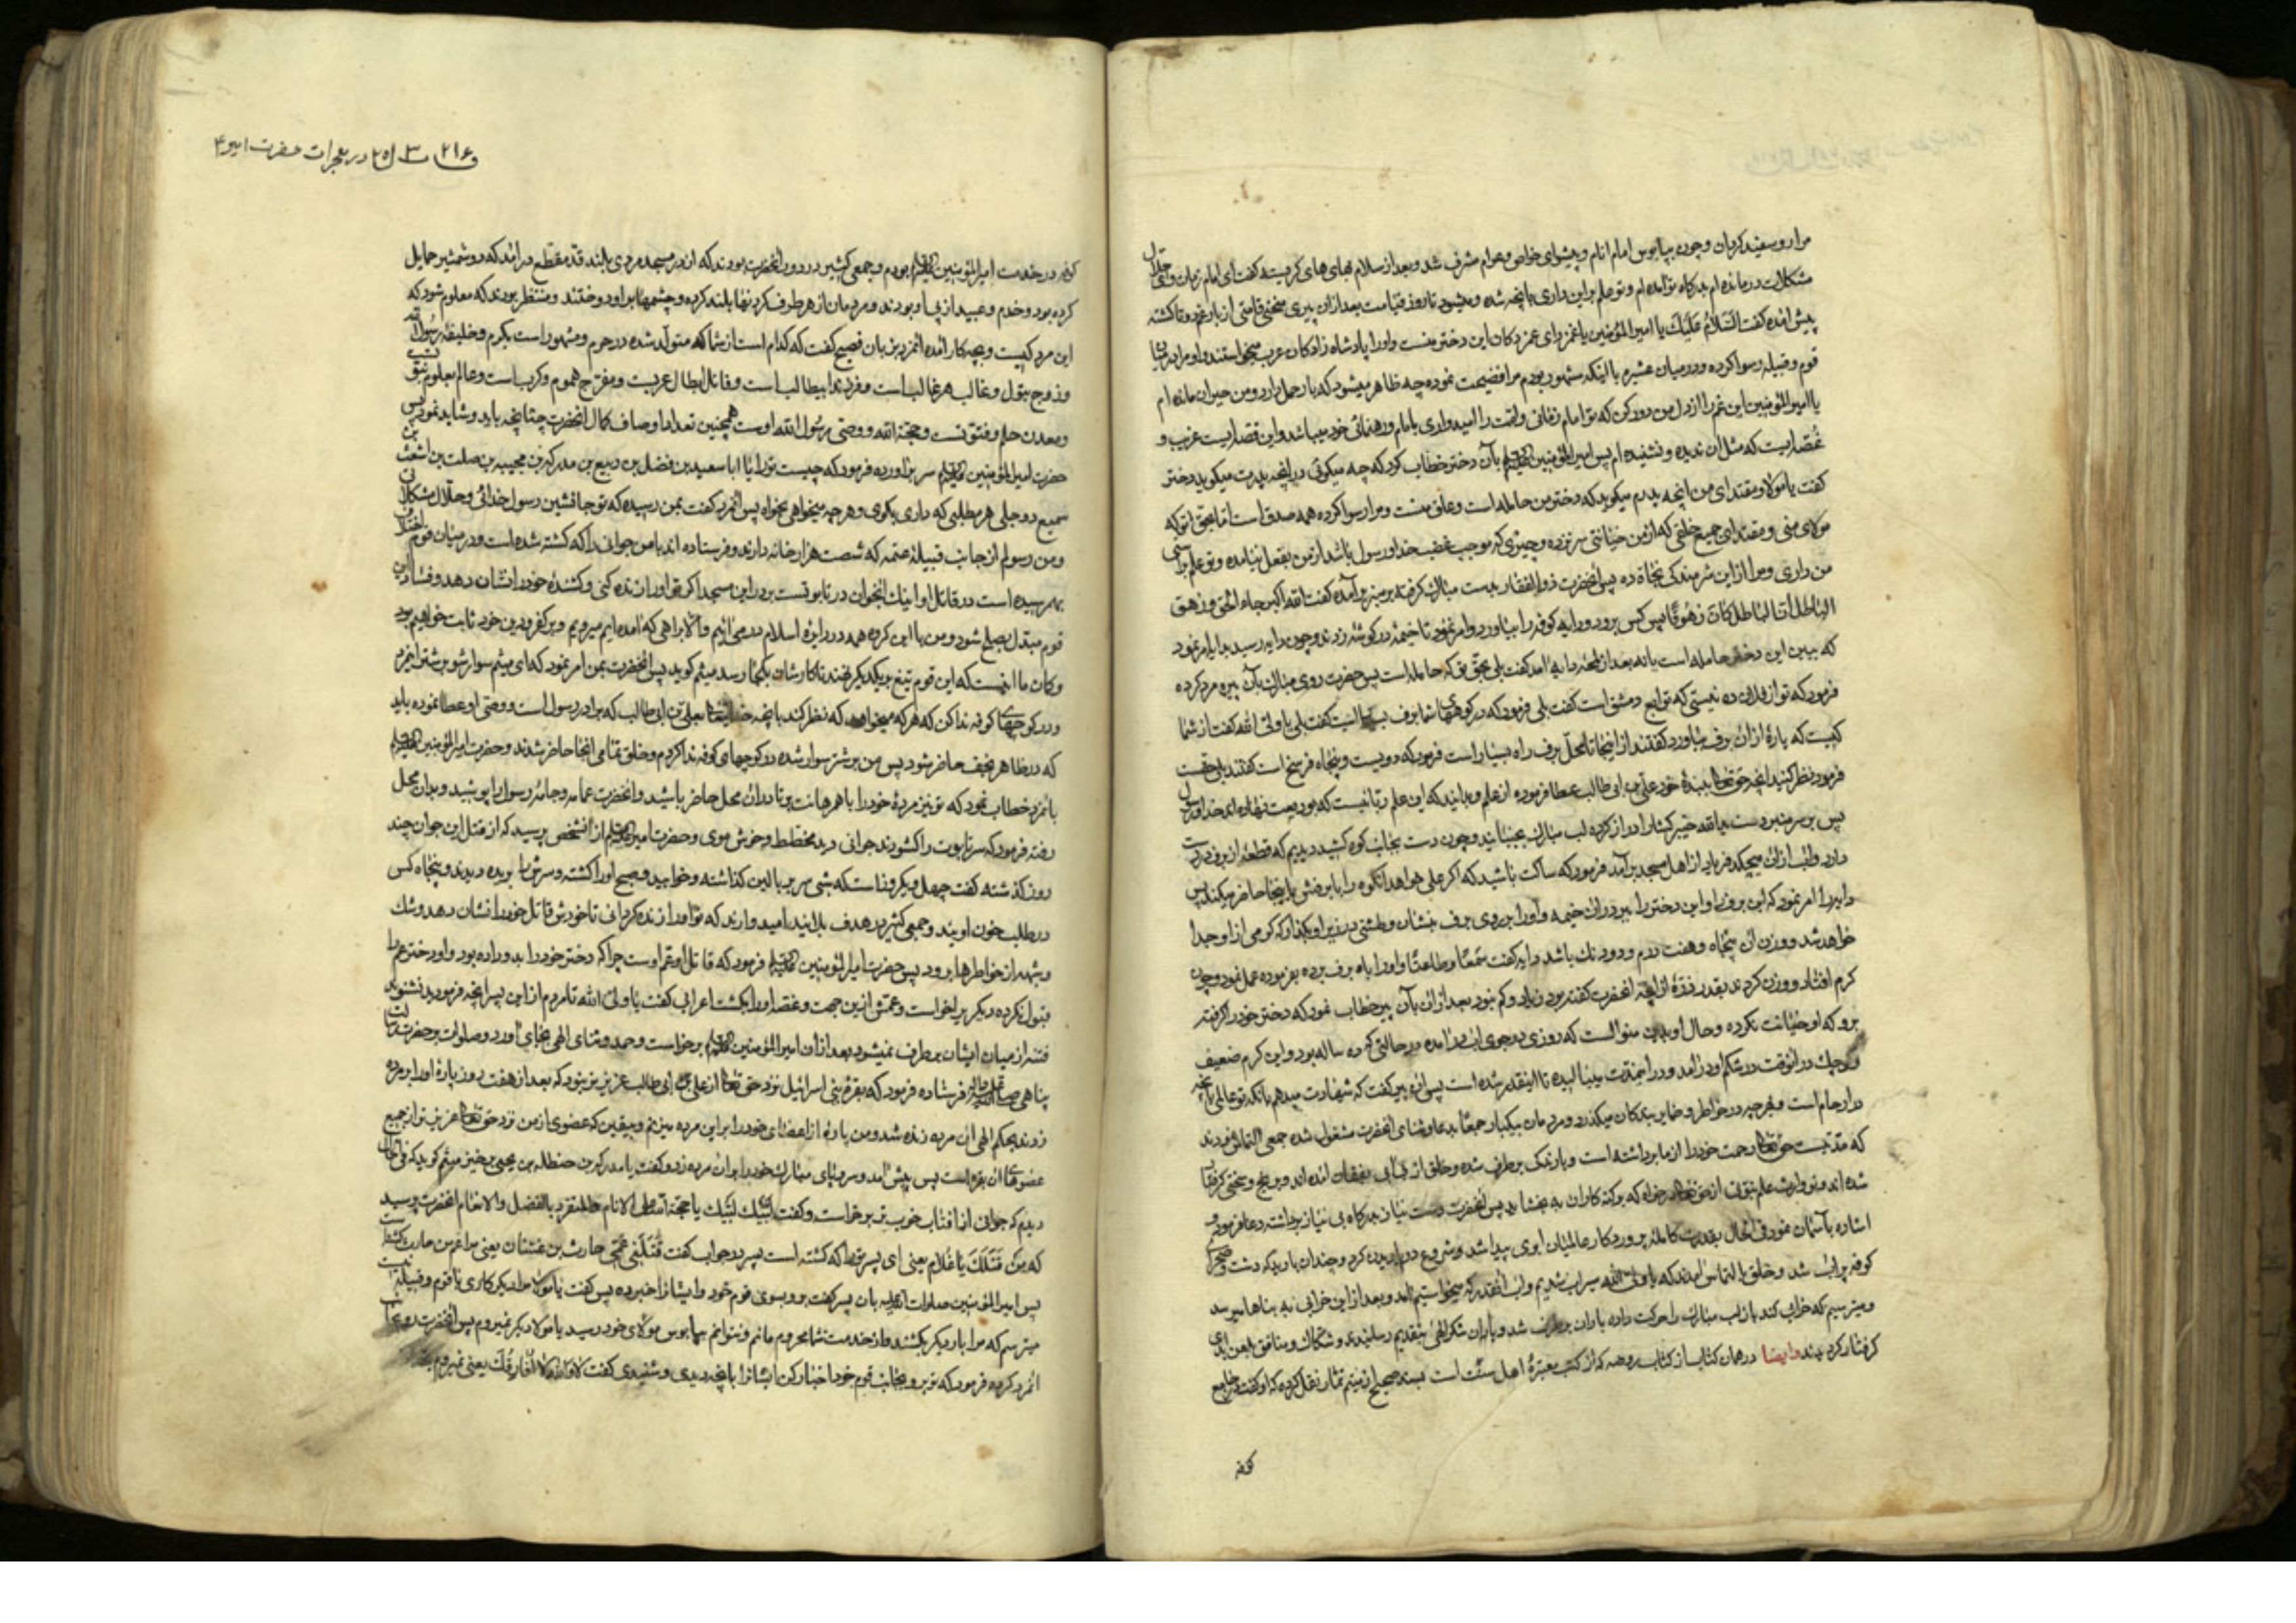 مرا رو سفید کردان و چون بپابوس امام انام و پیشوای خواص و عوام مشرف شد و بعد از سلام بهای های کریسته کفت ای امام زمان و ای حلال
مشکلات درمانده ام بدرکاه تو آمده ام و تو علم بر این داری بانچه شده و میشود تا روز قیامت بعد از آن پیری منحنی قامتی از بار غم دوتا کشته
پیش آمده کفت السلام علیك یا امیر المؤمنین یا غمزدای غمزدکان این دختر منست و او را پادشاه زادکان عرب میخواستند و او مرا در میان
قوم و قبیله رسوا کرده و در میان عشیره با اینکه مشهور بودم مرا فضیحت نموده چه ظاهر میشود که بار حمل دارد و من حیران مانده ام
یا امیر المؤمنین این غم را از دل من دور کن که تو امام زمانی و امت را امیدواری بامام و رهنمائی خود میباشد و این قصه ایست غریب و
غصه ایست که مثل ان ندیده و نشنیده ام پس امیر المؤمنین بآن دختر خطاب کرد که چه میکوئی در انچه پدرت میکوید دختر
کفت یا مولا و مقتدای من انچه پدرم میکوید که دختر من حامله است و عاق منست و مرا رسوا کرده همه صدق است اما بحق تو که
مولای منی و مقتدای جمیع خلقی که از من خیانتی سر نزده و چیزی که موجب غضب خدا و رسول باشد از من بفعل نیامده و تو علم براستی
من داری و مرا از این شرمندکی نجاة ده پس انحضرت ذو الفقار بدست مبارك کرفته بر منبر برآمده کفت الله اکبر جاء الحق و زهق
الباطل ان الباطل کان زهوقا پس کس برود و دایه کوفه را بیاورد و امر نمود تا خیمه در کوشه زدند و چون دایه رسید بدایه امر نمود
که ببین این دختر حامله است یا نه بعد از لمحه دایه آمد کفت بلی بحق تو که حامله است پس حضرت روی مبارك بآن پیره مرد کرده
فرمود که تو از فلان ده نیستی که توابع دمشق است کفت بلی فرمود که در کوههای شما برف بسیار است کفت بلی یا ولی الله کفت از شما
کیست که پارۀ از ان برف بیاورد کفتند از اینجا تا محل برف راه بسیار است فرمود که دویست و پنجاه فرسخ است کفتند بلی چنین است
فرمود نظر کنید انچه حق تعالی ببندۀ خود علی بن ابی طالب عطا فرموده از علم و بدانید که این علم ربانیست که بودیعت نهاده اند خدا و رسول
پس بر سر منبر دست ید الله خیبر کشا را دراز کرده لب مبارك بجنبانید و چون دست بجانب کوه کشید دیدیم که قطعۀ از برف در دست
دارد و اب از ان میچکد فریاد از اهل مسجد برآمد فرمود که ساکت باشید که اکر علی خواهد انکوه را با برفش باینجا حاضر میکند پس
دایه را امر نمود که این برف را و این دختر را ببر در ان خیمه و او را بر روی برف بنشان و طشتی در زیر او بکذار که کرمی از او جدا
خواهد شد و وزن ان پنجاه و هفت درم و دو دنك باشد دایه کفت سمعا و طاعتا و او را باه برف برده بفرموده عمل نمود و چون
کرم افتاد و وزن کردند بقدر ذرۀ از انچه انحضرت کفته بود زیاد و کم نبود بعد از ان بآن پیر خطاب نمود که دختر خود را کرفته
برو که او خیانت نکرده و حال او بدین منوالست که روزی در جوی ابی درآمده در حالتی که ده ساله بود و این کرم ضعیف
کوچك در انوقت در شکم او درآمد و در اینمدت میبالیده تا اینقدر شده است پس ان پیر کفت که شهادت میدهم بانکه تو عالمی بانچه
در ارحام است و هر چه در خواطر و ضمایر بندکان میکذرد و مردمان بیکبار جمعا بدعا و ثنای انحضرت مشغول شده جمعی التماس نمودند
که مدتیست حق تعالی رحمت خود را از ما برداشته است و باران نمک برطرف شده و خلق از بی آبی بفغان امده اند و برنج و سختی کرفتار
شده اند و تو وارث علم نبوتی از حق تعالی در خواه که بر کنه کاران به بخشاید پس انحضرت دست نیاز بدرکاه بی نیاز برداشته دعا فرمود و
اشاره بآسمان نمود فی الحال بقدرت کامله پروردکار عالمیان ابری پیدا شد و شروع در باریدن کرد و چندان بارید که دشت و صحرای
کوفه پر اب شد و خلق بالتماس امدند که یا ولی الله سیراب شدیم و اب انقدر که میخواستیم آمد و بعد از این خرابی به بناها میرسد
و میترسیم که خراب کند باز لب مبارك را حرکت داده باران برطرف شد و یاران شکر الهی بتقدیم رسانیدند و شکاك و منافق بلعن ابدی
کرفتار کردیدند وایضا در همان کتاب از کتاب روضه که از کتب معتبرۀ اهل سنت است بسند صحیح از میثم تمار نقل کرده که او کفت در جامع
کوفه
در معجزات حضرت امیر ع
کوفه در خدمت امیر المؤمنین بودم و جمعی کثیر در دور انحضرت بودند که از در مسجد مردی بالند قد مقطع درآمد که دو شمشیر حمایل
کرده بود و خدم و عبید از پی او بودند و مردمان از هر طرف کردنها بلند کرده و چشمها بر او دوختند و منتظر بودند که معلوم شود که
این مرد کیست و بچه کار آمده انمرد بزبان فصیح کفت که کدام است از شما که متولد شده در حرم و مشهور است بکرم و خلیفۀ رسول الله
و زوج بتول و غالب هر غالب است و فرزند ابیطالب است و قاتل ابطال عربست و مفرج هموم و کرب است و عالم بعلوم نبوت
و معدن حلم و فتوتست و حجة الله و وصی رسول الله اوست همچنین تعداد اوصاف کمال انحضرت چنانچه باید و شاید نمود پس
حضرت امیر المؤمنین سر برآورده فرمود که چیست تو را یا ابا سعید بن فضل بن ربیع بن مدرکه بن نجیبه بن صلت بن اشعث بن
سمیع دوجلی هر مطلبی که داری بکوی و هر چه میخواهی بخواه پس انمرد کفت بمن رسیده که تو جانشین رسول خدائی و حلال مشکلاتی
و من رسولم از جانب قبیلۀ عتمه که شصت هزار خانه دارند و فرستاده اند با من جوانی را که کشته شده است و در میان قوم اختلاف
بهم رسیده است در قاتل او اینك انجوان در تابوتست بر در این مسجد اکر تو او را زنده کنی و کشندۀ خود را نشان دهد و فساد این
قوم مبدل بصلح شود و من با این کرده همه در دایرۀ اسلام درمی آئیم و الا براهی که آمده ایم میرویم و بر کفر و دین خود ثابت خواهیم بود
و کمان ما اینست که این قوم تیغ بر یکدیکر نهند تا کارشان بکجا رسد میثم کوید پس انحضرت بمن امر نمود که ای میثم سوار شو بر شتر انمرد
و در کوچهای کوفه ندا کن که هر که میخواهد که نظر کند بانچه خدایتعالی بعلی بن ابی طالب که برادر رسول است و وصی او عطا نموده باید
که در ظاهر نجف حاضر شود پس من بر شتر سوار شده در کوچهای کوفه ندا کردم و خلق تمامی انجا حاضر شدند و حضرت امیر المؤمنین
بانمرد خطاب نمود که تو نیز مردۀ خود را با همرهانت بردار در ان محل حاضر باشید و انحضرت عمامه و جامۀ رسول را پوشید و بدان محل
رفته فرمود که سر تابوت را کشودند جوانی دید مخطط و خوش موی و حضرت امیر از انشخص پرسید که از قتل این جوان چند
روز کذشته کفت چهل و یکروز است که شبی سر بر بالین کذاشته و خوابید و صبح او را کشته و سرش را بریده دیدند و پنجاه کس
در طلب خون اویند و جمعی کثیر در هدف بلا ایند امید وارند که تو او را زنده کردانی تا خودش قاتل خود را نشان دهد و شك
و شبهه از خواطرها برود پس حضرت امیر المؤمنین فرمود که قاتل او عم اوست چرا که دختر خود را بدو داده بود و او دختر عم را
قبول نکرده دیکریرا خواست و عمش از این جهت و غصه او را بکشت اعرابی کفت یا ولی الله تا مردم از این پسر انچه فرمودید نشنوند
فتنه از میان ایشان برطرف نمیشود بعد از ان امیر المؤمنین برخواست و حمد و ثنای الهی بجای آورد و صلوات بر حضرت رسالت
پناهی فرستاده فرمود که بقرۀ بنی اسرائیل نزد حق تعالی از علی بن ابی طالب عزیز تر نبود که بعد از هفت روز پارۀ او را بر مرده
زدند بحکم الهی ان مرده زنده شد و من پارۀ از اعضای خود را بر این مرده میزنم و بیقین که عضوی از من نزد حق تعالی عزیز تر از جمیع
عضوهای ان بقره است پس پیش آمد و سر پای مبارك خود را بر ان مرده زد و کفت یا مدرکه بن حنظله بن یحیی برخیز میثم کوید که فی الحال
دیدم که جوانی از افتاب خوب تر برخواست و کفت لبیك لبیك یا حجة الله علی الانام والمتفرد بالفضل والانعام انحضرت پرسید
که من قتلك یا غلام یعنی ای پسر تو را که کشته است پسر در جواب کفت قتلنی عمی حارث بن غسان یعنی مرا عم من حارث کشته است
پس امیر المؤمنین صلوات الله علیه بان پسر کفت برو بسوی قوم خود و ایشان را خبر ده پس کفت یا مولا مرا دیکر کاری با قوم و قبیله نیست
میترسم که مرا بار دیکر بکشند و از خدمت شما محروم مانم و نتوانم بپابوس مولای خود رسید یا مولا دیکر نمیروم پس انحضرت رو بجانب
انمرد کرده فرمود که تو برو بجانب قوم خود اخبار کن ایشانرا بانچه دیدی و شنیدی کفت لا والله لا افارقك یعنی نمیروم